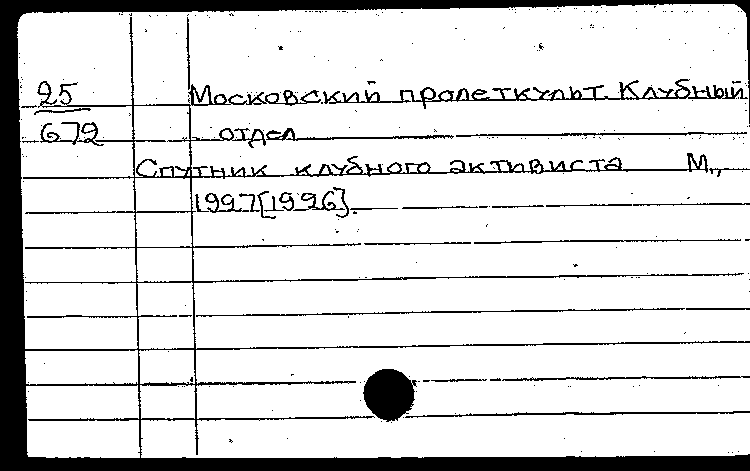 25 Московский пролеткульт. Клубный
672 отдел
Спутник клубного активиста. М.,
1927[1926].